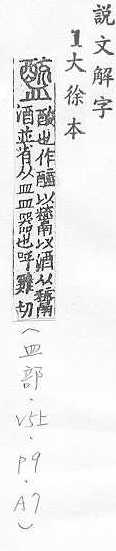 説文解字
1大徐本
醯 酸也作醯以鬻以酒从鬻
酒並省从皿皿器也呼雞切
(皿部·V5上·P9·A7)